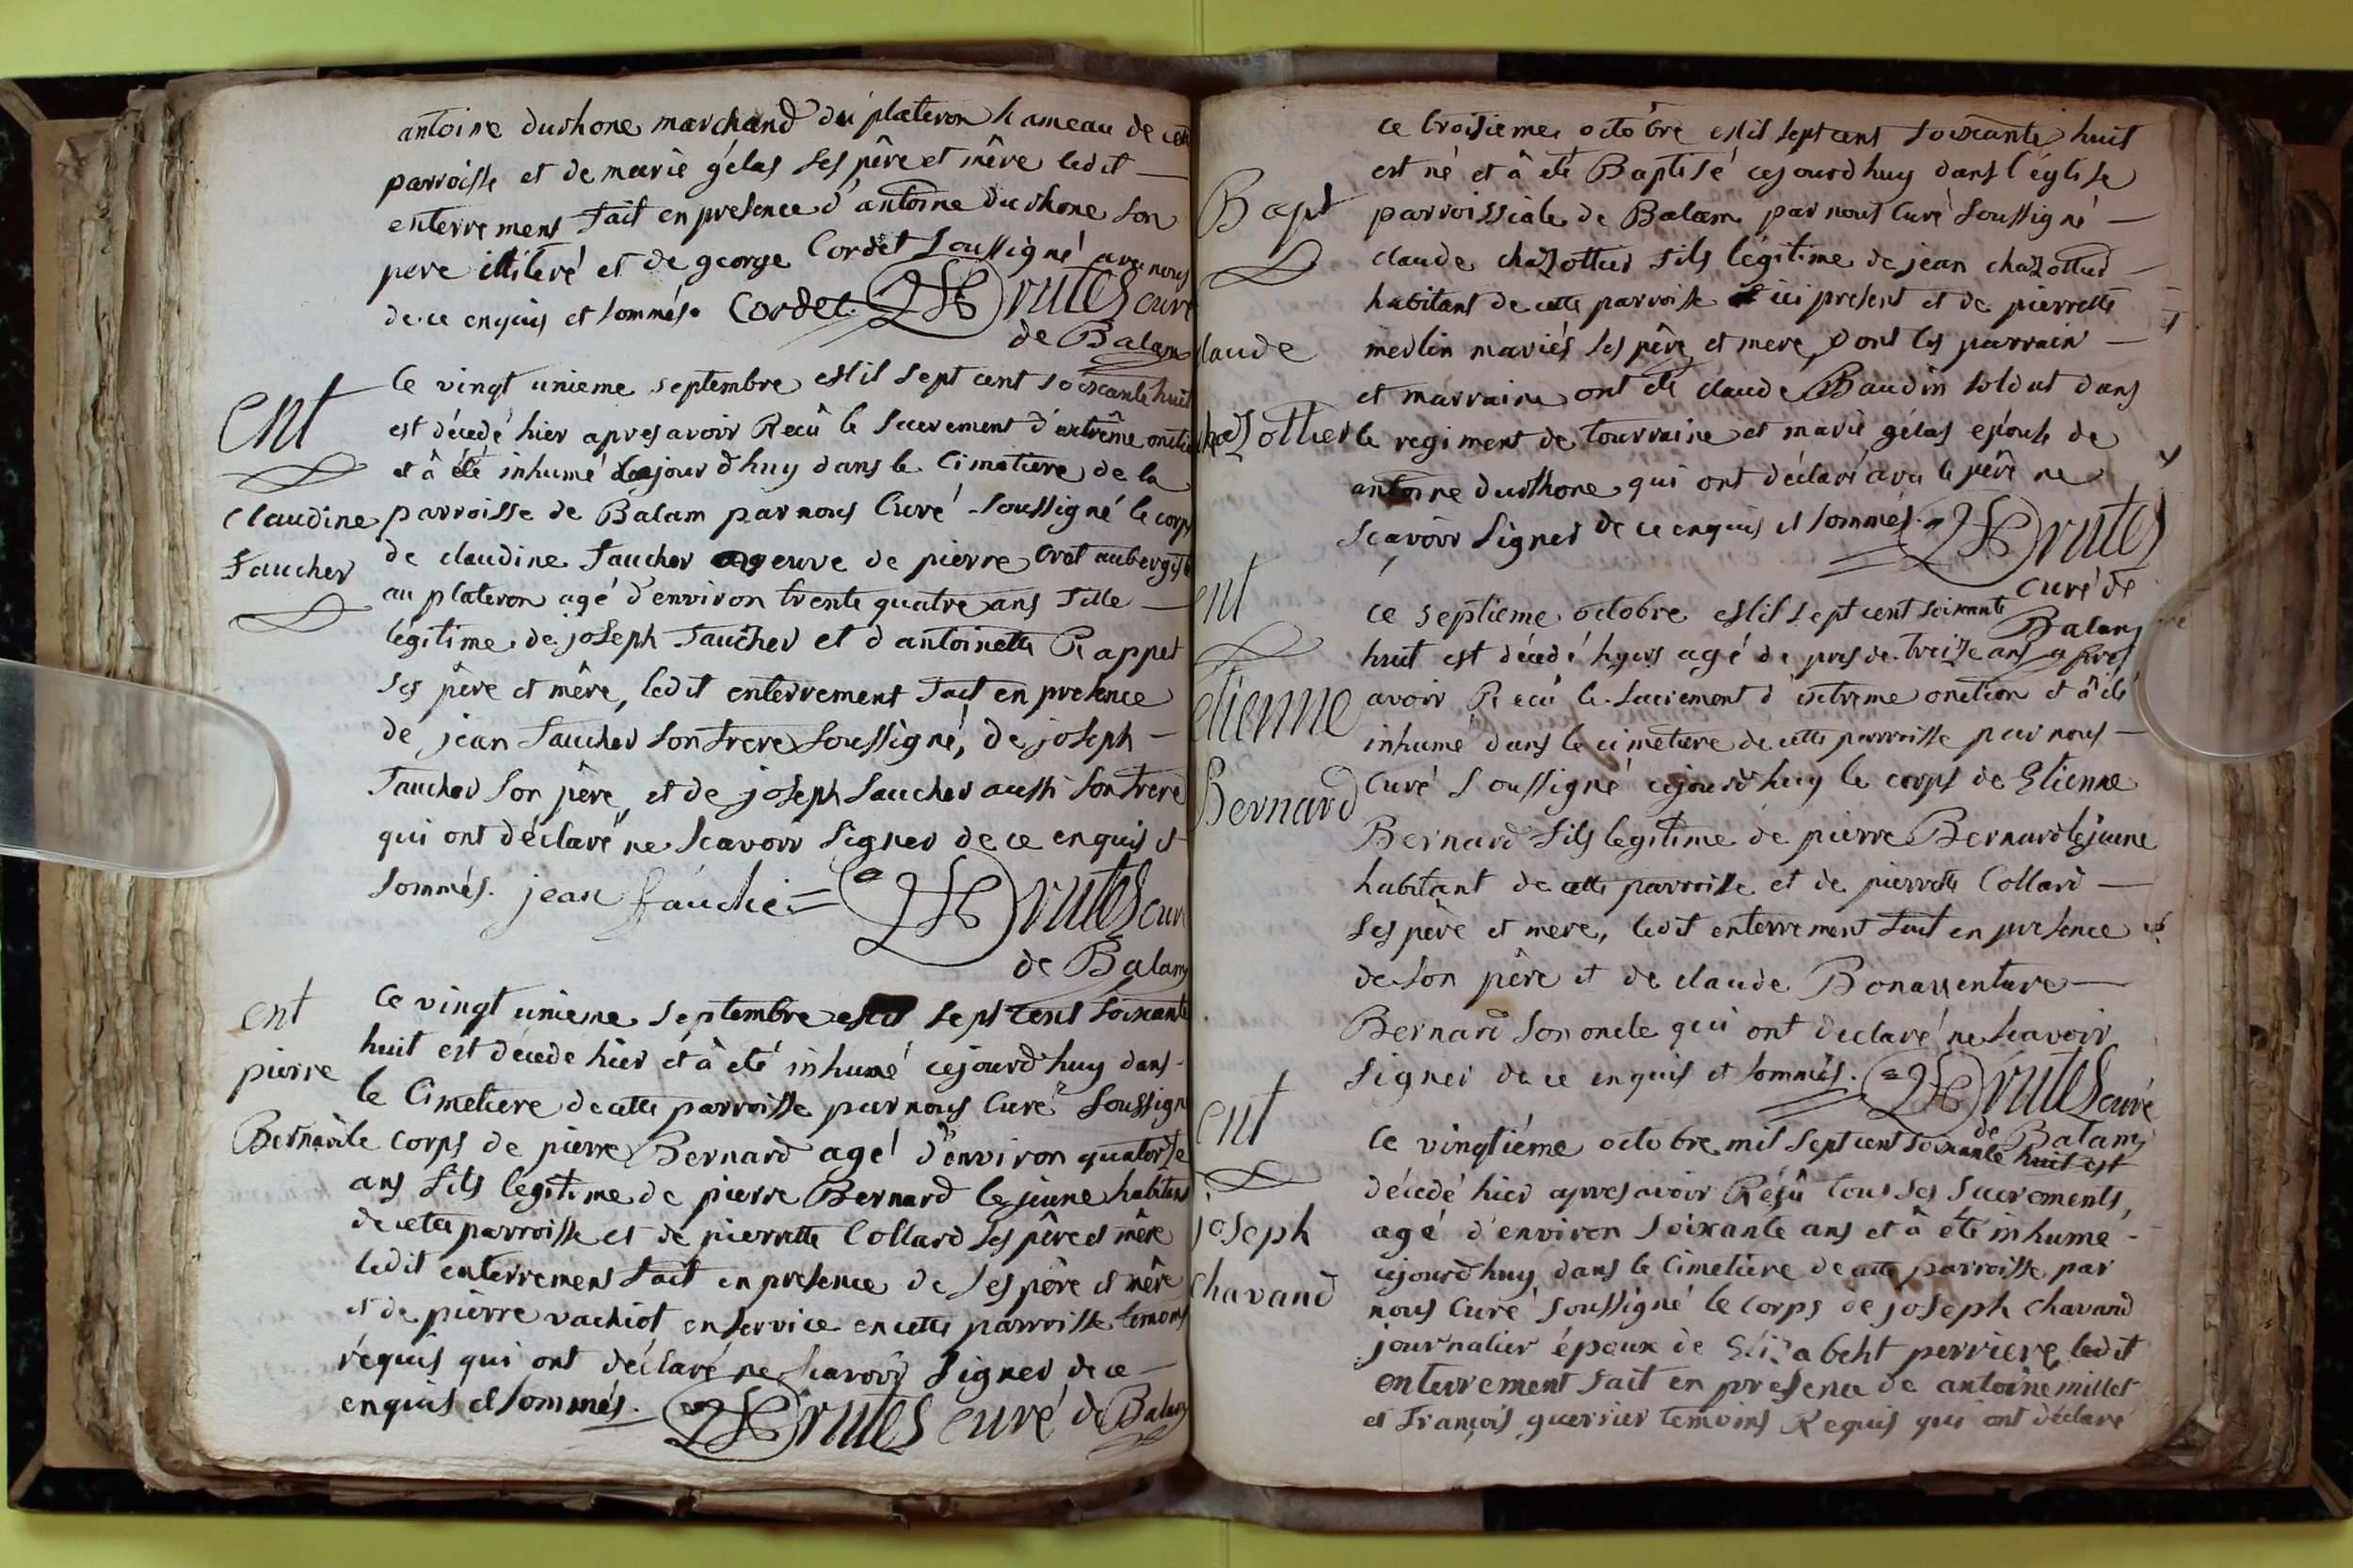 antoine durhone marchand du plateron hameau de cette
parroisse et de marie gélas ses pêre et mêre ledit
enterrement fait en presence d'antoine durhone son
pere illiteré et de george Cordet soussigné avec nous
de ce enquis et sommés. Cordet. Drutes curé
de Balam
ent
Claudine
faucher
Ce vingt unieme septembre mil sept cent soixante huit
est décedé hier apres avoir Reçû le sacrement d'extrême onction
et â été inhumé cejourd'huy dans le Cimetiere de la
parroisse de Balam par nous Curé soussigné le corps
de claudine faucher veuve de pierre Orat aubergiste
au plateron agé d'environ trente quatre ans fille
legitime de joseph faucher et d antoinette Rappet
ses pêre et mêre, ledit enterrement fait en presence
de jean faucher son frere soussigné, de joseph
faucher son pêre, et de joseph faucher aussi son frere
qui ont déclaré ne scavoir signer de ce enquis et
sommés. jean fauché Drutes curé
de Balam
ent
pierre
Bernard
Ce vingt unieme septembre mil sept cent soixante
huit est décedé hier et â eté inhumé cejourd'huy dans
le Cimetiere de cette parroisse par nous Curé soussigné
le corps de pierre Bernard agé d'environ quatorze
ans fils legitime de pierre Bernard le jeune habitant
de cette parroisse et de pierrette Collard ses pêre et mêre
ledit enterrement fait en presence de ses pêre et mêre
et de pierre vachiot en service en cette parroisse temoins
requis qui ont déclaré ne scavoir signer de ce
enquis et sommés. Drutes curé de Balam
Bapt
claude
chazottier
Ce troisieme octobre mil sept cent soixante huit
est né et â eté Baptisé cejourd huy dans l'église
parroissiale de Balam par nous Curé soussigné
claude chazottier fils légitime de jean chazottier
habitant de cette parroisse ici present et de pierrette
merlin mariés ses pêre et mere, dont les parrain
et marraine ont eté claude Baudin soldat dans
le regiment de tourraine et marie gélas epouse de
antoine durhone qui ont déclaré avec le pêre ne
scavoir signer de ce enquis et sommés. Drutes
curé de
Balam
ent
etienne
Bernard
Ce septieme octobre mil sept cent soixante
huit est décedé hyers agé de pres de treize ans apres
avoir Reçû le sacrement d'extreme onction et â eté
inhumé dans le cimetiere de cette parroisse par nous
Curé soussigné cejourd'huy le corps de Etienne
Bernard fils legitime de pierre Bernard le jeune
habitant de cette parroisse et de pierrette Collard
ses pêre et mere, ledit enterrement fait en presence
de son pêre et de claude Bonaventure
Bernard son oncle qui ont declaré ne scavoir
signer de ce enquis et sommés. Drutes curé
de Balam
ent
joseph
chavand
Ce vingtiéme octobre mil sept cent soixante huit est
décedé hier apres avoir Reçû tous ses sacrements,
agé d'environ soixante ans et â eté inhumé
cejourd'huy dans le Cimetiere de cette parroisse par
nous Curé soussigné le corps de joseph chavand
journalier époux de Elizabeht perriere, ledit
enterrement fait en presence de antoine millet
et françois guerrier temoins Requis qui ont déclaré